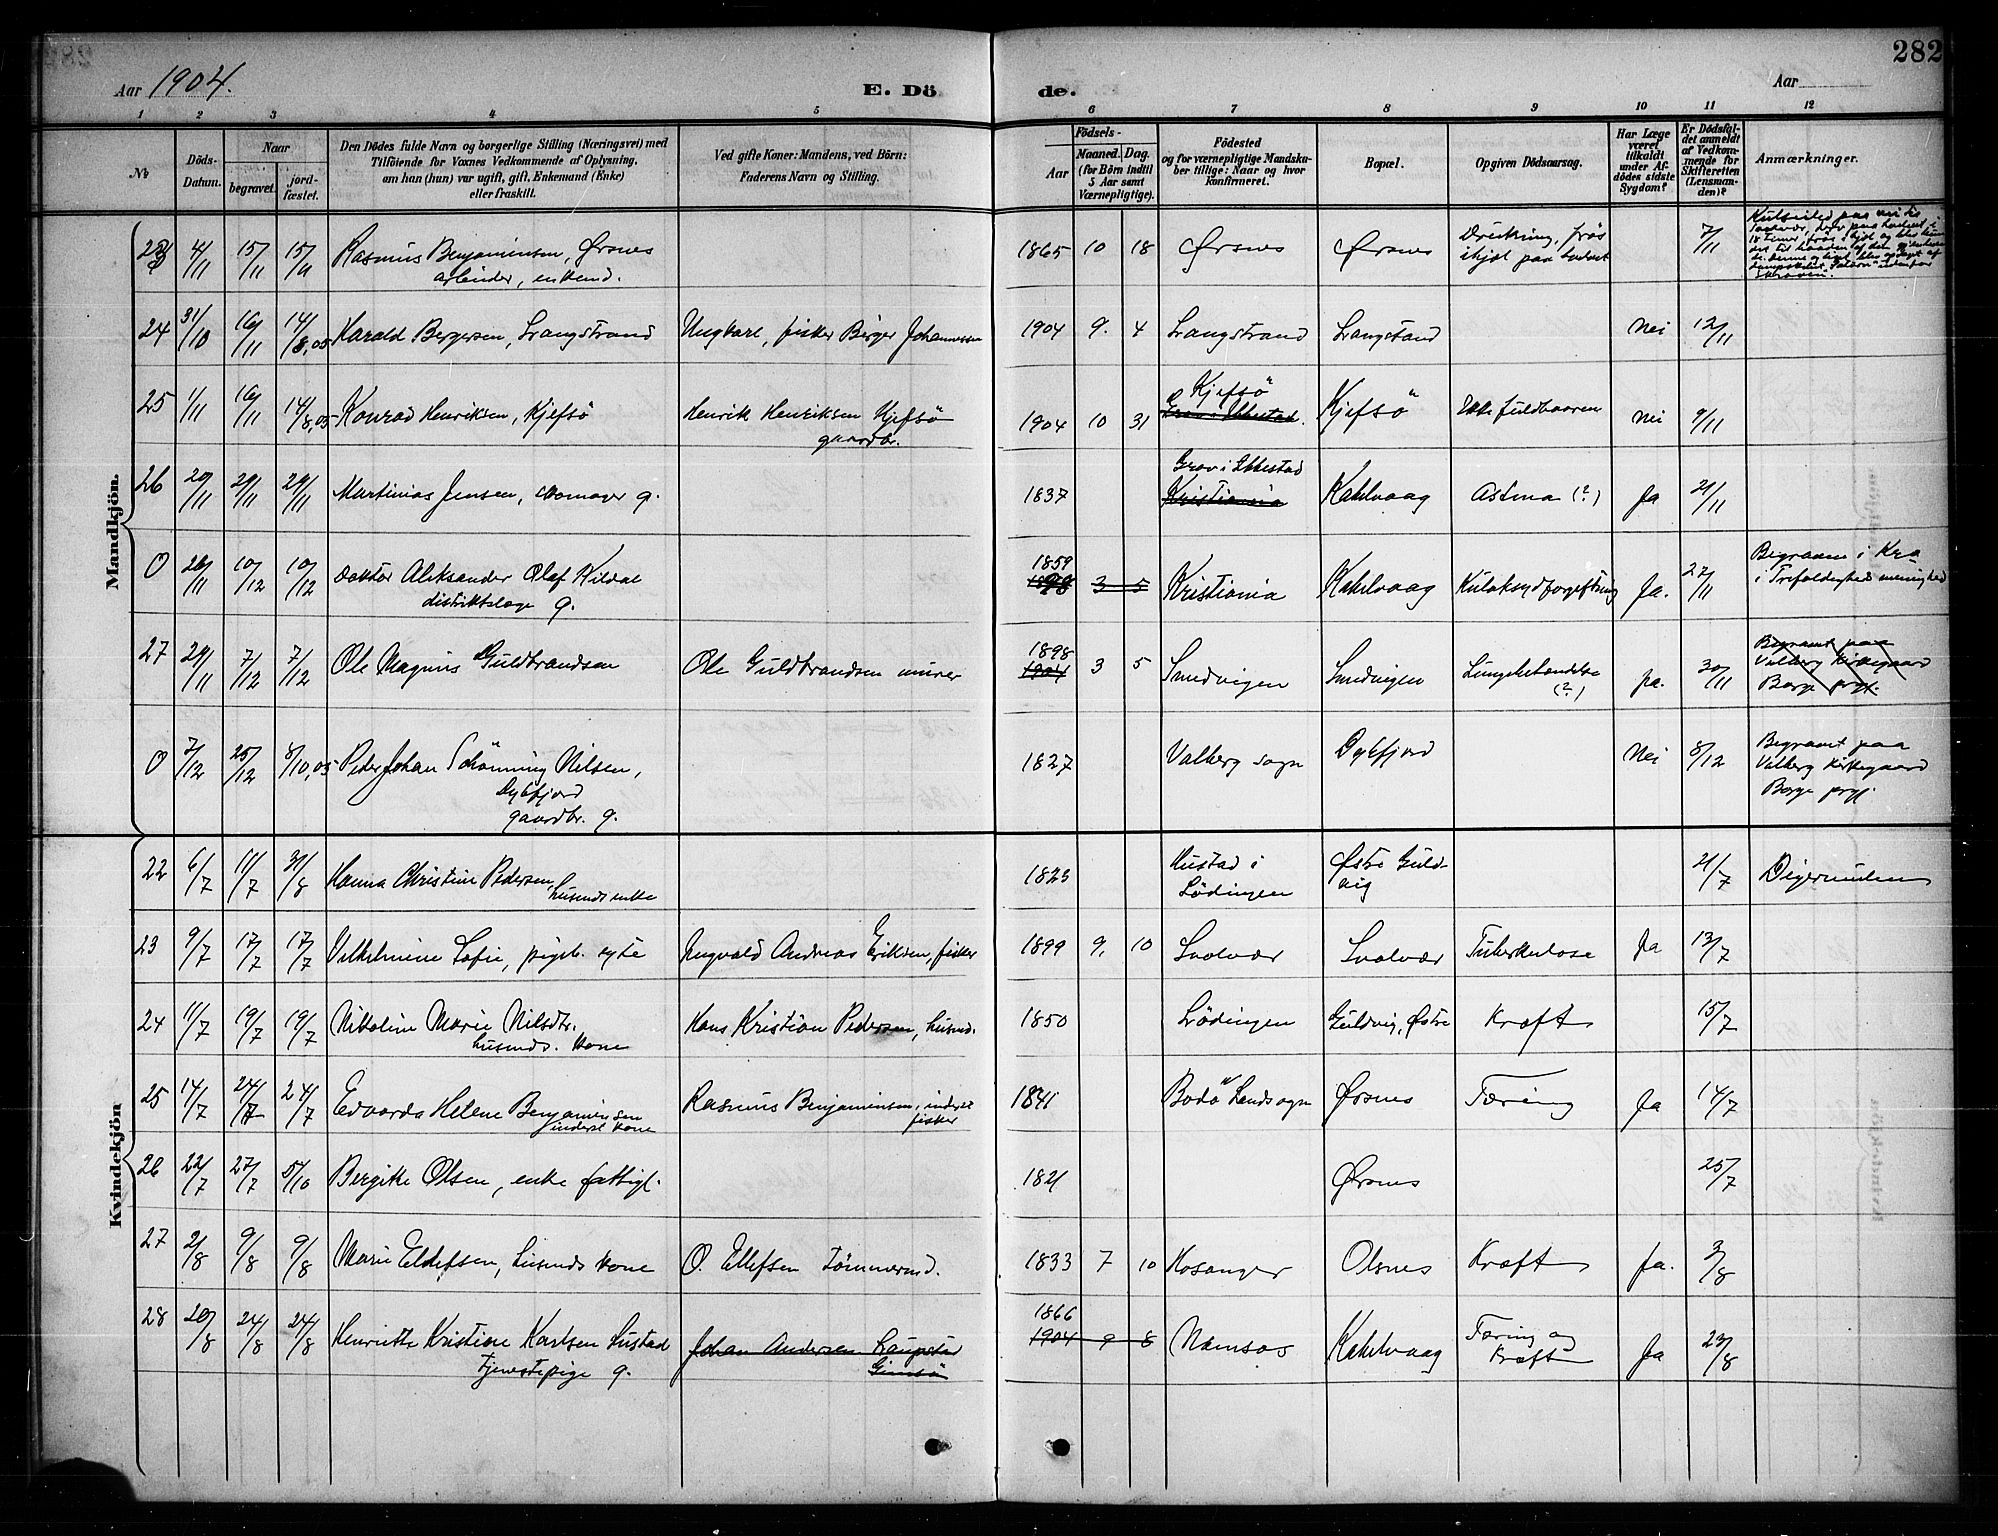 282
Aar 1904.
E. Dö
de.
Aar
1 2 3 4 5 6 7 8 9 10 11 12
No
Döds-
Datum.
Naar
begravet.
jord-
fæstet.
Den Dödes fulde Navn og borgerlige Stilling (Næringsvei) med
Tilföiende for Voxnes Vedkommende af Oplysning,
om han (hun) var ugift, gift, Enkemand (Enke)
eller fraskilt.
Ved gifte Koner: Mandens, ved Börn:
Faderens Navn og Stilling.
Födsels-
Aar
Maaned. Dag.
(for Börn indtil
5 Aar samt
Værnepligtige).
Födested
og for værnepligtige Mandska-
ber tillige: Naar og hvor
konfirmeret.
Bopæl.
Opgiven Dödsaarsag.
Har Læge
været
tilkaldt
under Af-
dödes sidste
Sygdom?
Er Dödsfal-
det anmeldt
af Vedkom-
mende for
Skifteretten
(Lensman-
den)?
Anmærkninger.
Mandkjön.
23 4/11 15/11 15/11 Rasmus Benjaminsen, Ørsnes
arbeider, enkemd.
1865 10 18 Ørsnes Ørsnes Drukning, frøs
ihjel paa 7/11
24 31/10 16/11 14/8,05 Harald Bergersen, Langstrand Ungkarl, fisker Birger Johannessen 1904 9. 4 Langstrand Langstand Nei 12/11
25 1/11 16/11 14/8,05 Konrad Henriksen, Kjefsö Henrik Henriksen Kjefsö
gaardbr.
1904 10 31 Kjefsö
Grov i Ibbestad. Kjefsö Ikke fuldbaaren Nei 9/11
26 20/11 29/11 29/11 Martinias Jensen, g. 1837 Grov i Ibbestad
Kristiania Kabelvaag Astma (?) Ja 21/11
0 26/11 10/12 10/12 Doktor Aleksander Olaf Kildal
distriktslæge g.
1859
1898 3 5 Kristiania Kabelvaag Kuloksydforgiftning Ja. 27/11 Begraven i Kra
i Trefoldigheds menighed
27 29/11 7/12 7/12 Ole Magnus Guldbrandsen Ole Guldbrandsen murer 1898
1904 3 5 Smedvigen Smedvigen Lungebetændelse
(?) ja. 30/11 Begravet paa
Valberg Kirkegaard
Borge prgj.
0 7/12 25/12 8/10,05 Peder Johan Schönning Nilsen,
Dybfjord
gaardbr. g.
1827 Valberg sogn Dybfjord Nei 8/12 Begravet paa
Valberg kirkegaard
Borge prgj.
Kvindekjön
22 6/7 11/7 31/8 Hanna Christine Pedersen,
husmds enke
1823 Hustad i
Lödingen Østre Guld-
vig 21/7 Digermulen
23 9/7 17/7 17/7 Vilhelmine Sofie, pigeb. ægte Ingvald Andreas Eriksen, fisker 1899 9. 10 Svolvær Svolvær Tuberkulose Ja 13/7
24 11/7 19/7 19/7 Nikoline Marie Nilsdtr.
husmds. kone
Hans Kristian Pedersen, husmd. 1850 Lödingen Guldvig, Østre Kræft 15/7
25 14/7 24/7 24/7 Edvarda Helene Benjaminsen
inderst kone
Rasmus Benjaminsen, inderst
fisker
1841 Bodö Landsogn Ørsnes Tæring Ja 14/7
26 22/7 27/7 5/10 Bergitte Olsen, enke fattigl. 1821 Ørsnes 25/7
27 2/8 9/8 9/8 Marie Ellefsen, husmds kone O. Ellefsen Tömmermd. 1833 7 10 Hosanger Olsnes Kræft Ja. 3/8
28 20/8 24/8 24/8 Henriette Kristine Karlsen Hustad
tjenestepige g.
Johan Andersen Laupstad
Gimsö
1866
1904 9 8 Namsos Kabelvaag Tæring og
Kræft Ja 23/8